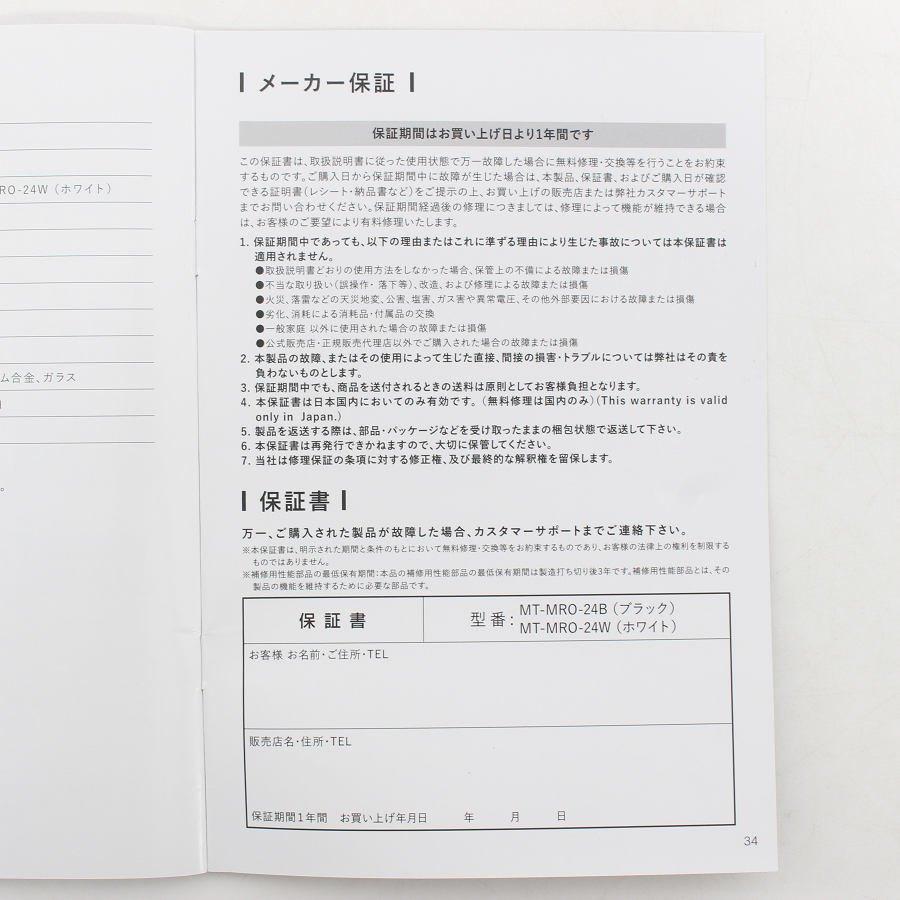 RO-24W（ホワイト）
ム合金、ガラス
メーカー保証
保証期間はお買い上げ日より1年間です
この保証書は、取扱説明書に従った使用状態で万一故障した場合に無料修理・交換等を行うことをお約束
するものです。ご購入日から保証期間中に故障が生じた場合は、本製品、保証書、およびご購入日が確認
できる証明書（レシート・納品書など）をご提示の上、お買い上げの販売店または弊社カスタマーサポート
までお問い合わせください。保証期間経過後の修理につきましては、修理によって機能が維持できる場合
は、お客様のご要望により有料修理いたします。
1. 保証期間中であっても、以下の理由またはこれに準ずる理由により生じた事故については本保証書は
適用されません。
●取扱説明書どおりの使用方法をしなかった場合、保管上の不備による故障または損傷
●不当な取り扱い（誤操作・落下等）、改造、および修理による故障または損傷
●火災、落雷などの天災地変、公害、塩害、ガス害や異常電圧、その他外部要因における故障または損傷
●劣化、消耗による消耗品・付属品の交換
●一般家庭 以外に使用された場合の故障または損傷
●公式販売店・正規販売代理店以外でご購入された場合の故障または損傷
2. 本製品の故障、またはその使用によって生じた直接、間接の損害・トラブルについては弊社はその責を
負わないものとします。
3. 保証期間中でも、商品を送付されるときの送料は原則としてお客様負担となります。
4. 本保証書は日本国内においてのみ有効です。（無料修理は国内のみ）（This warranty is valid
only in Japan.）
5. 製品を返送する際は、部品・パッケージなどを受け取ったままの梱包状態で返送して下さい。
6. 本保証書は再発行できかねますので、大切に保管してください。
7. 当社は修理保証の条項に対する修正権、及び最終的な解釈権を留保します。
保証書
万一、ご購入された製品が故障した場合、カスタマーサポートまでご連絡下さい。
※本保証書は、明示された期間と条件のもとにおいて無料修理・交換等をお約束するものであり、お客様の法律上の権利を制限する
ものではありません。
※補修用性能部品の最低保有期間：本品の補修用性能部品の最低保有期間は製造打ち切り後3年です。補修用性能部品とは、その
製品の機能を維持するために必要な部品です。
保証書
型番：
MT-MRO-24B（ブラック）
MT-MRO-24W（ホワイト）
お客様 お名前・ご住所・TEL
販売店名・住所・TEL
保証期間1年間 お買い上げ年月日 年 月 日
34